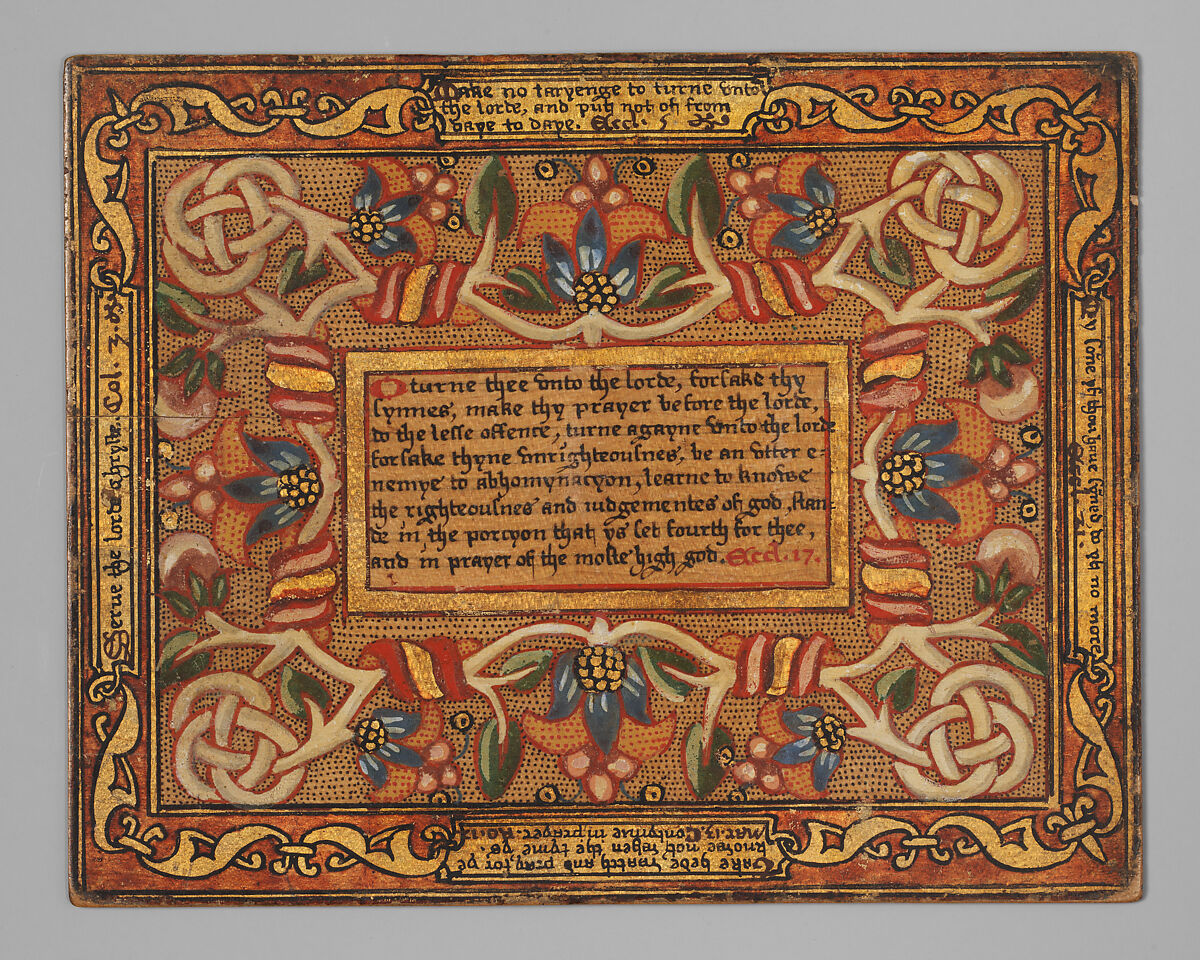 Make no taryenge to turne vnto
the lorde, and put not of from
daye to daye. Eccl. 5
O turne thee vnto the lorde, forsake thy
synnes, make thy prayer before the lorde,
do the lesse offence, turne agayne vnto the lorde
forsake thyne vnrighteousnes, be an vtter e-
nemye to abhomynacyon, learne to knowe
the righteousnes and iudgementes of god, stan-
de in the porcyon that ys set fourth for thee,
and in prayer of the moste high god. Eccl. 17.
Serue the lorde chryste. Col. 3.
My sone yf thou haue synned, do yt no more
Eccl. 21.
Take hede watch and pray for ye
knowe not when the tyme ys.
mar. 13. Contynue in prayer. Ro. 12